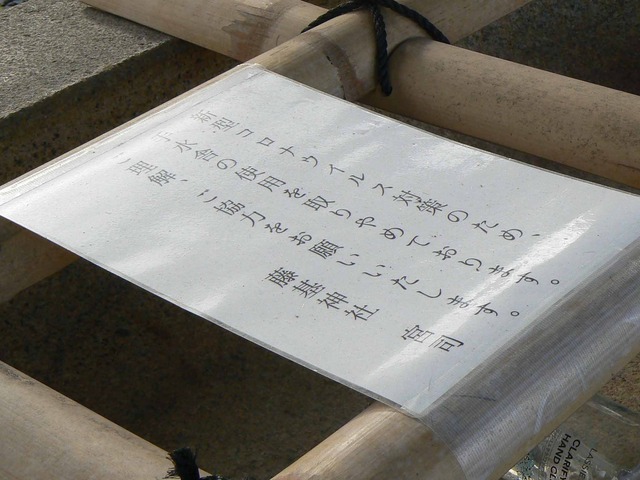 新型コロナウイルス対策のため、
手水舎の使用を取りやめております。
ご理解、ご協力をお願いいたします。
藤基神社 宮司
CLARIFY
HAND